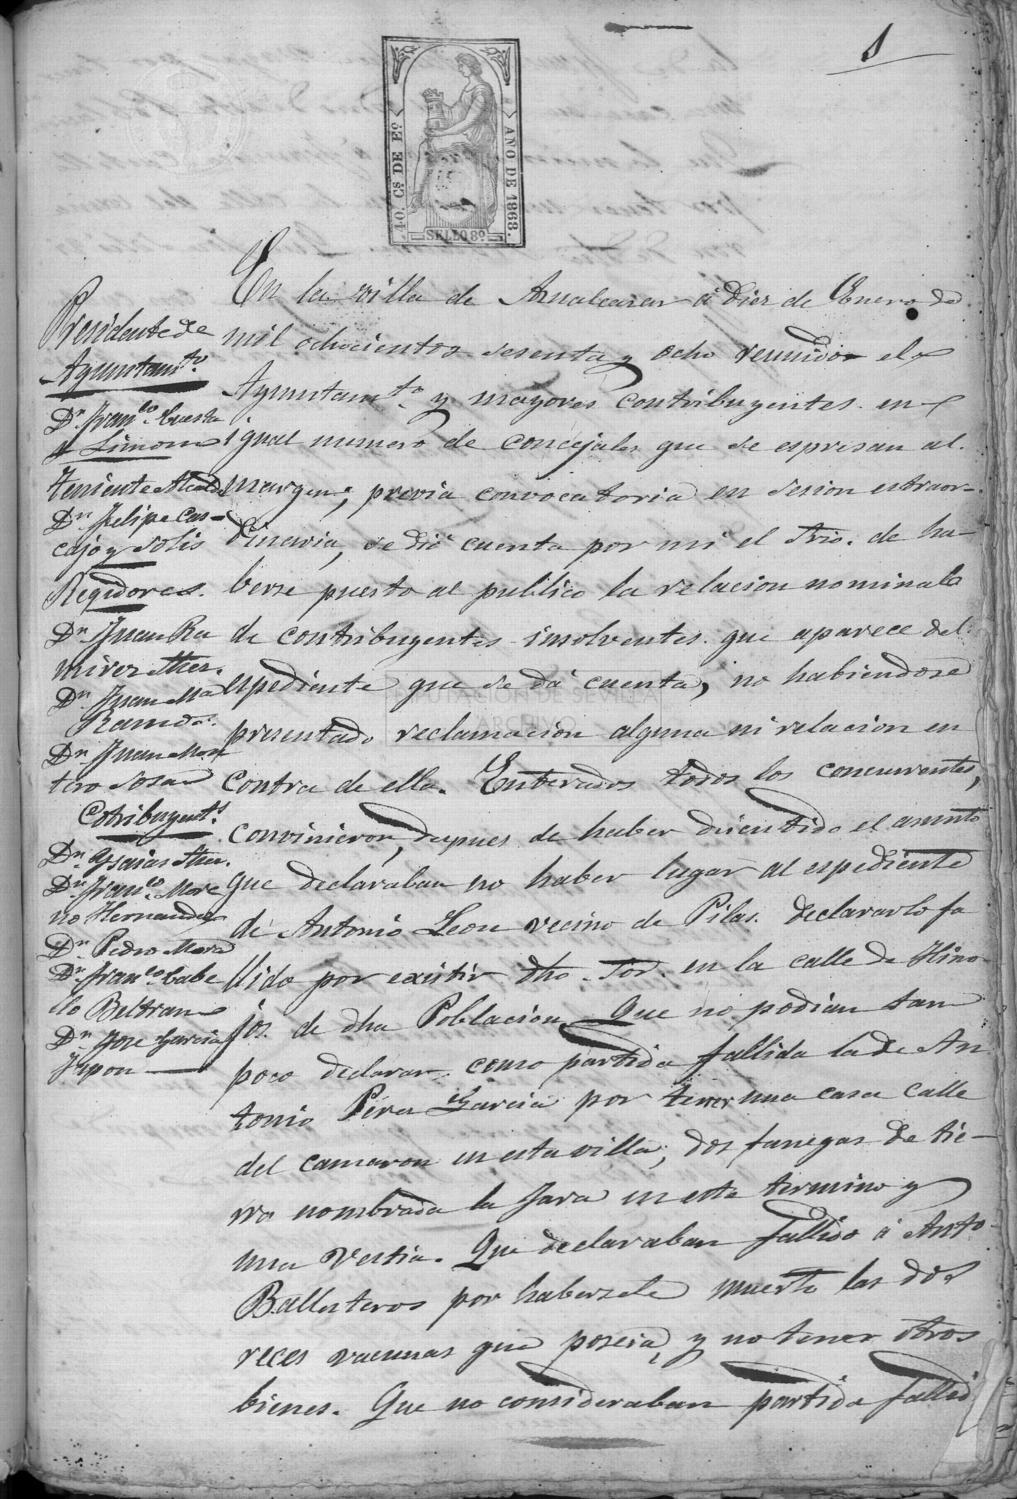 1
40. Cs DE Eo
AÑO DE 1868.
SELLO 8o
Presidente de
Ayuntamto
Dn Franco Cuesta
y Limon
Teniente Alcalde
Dn Felipe Cas-
cajo y Solis
Regidores.
Dn Juan Ra
mirez
Dn Juan Ma
Ramos.
Dn Juan Mon
tero Sosa
Cotribuyents
Dn Ysaias
Dn Franco More
no Hernandez
Dn Pedro Mora
Dn Franco Cabe
llo Beltran
Dn Jose Garcia
En la villa de Aznalcazar á diez de Enero de
mil ochocientos sesenta y ocho reunido el
Ayuntamto y mayores contribuyentes en
igual numero de concejales que se espresan al
margen; previa convocatoria en sesion estraor-
dinaria, se dió cuenta por mi el Srio. de ha-
berse puesto al publico la relacion nominal
de contribuyentes insolventes que aparece del
espediente que se dá cuenta, no habiendose
presentado reclamacion alguna ni relacion en
contra de ella. Enterados todos los concurrentes,
convinieron, despues de haber discutido el asunto
que declaraban no haber lugar al espediente
de Antonio Leon vecino de Pilas declararlo fa
llido por existir dho. Sor. en la calle de Hino-
jos. de dha Poblacion. Que no podian tam
poco declarar como partida fallida la de An
tonio Pera Garcia por tener una casa calle
del camaron en esta villa, dos fanegas de tie-
rra nombrada la Jara en este termino y
una vestia. Que declaraban fallido á Anto
Ballesteros por habersele muerto las dos
reces vacunas que poseia, y no tener otros
bienes. Que no consideraban partida fallid
DIPUTACION DE SEVILLA
ARCHIVO